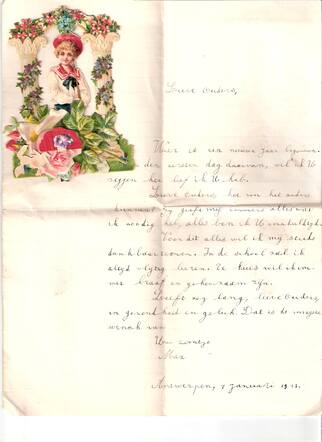 Lieve Ouders,
Weer is een nieuw jaar begonnen
den eersten dag daarvan, wil ik U
zeggen hoe lief ik U heb.
Lieve Ouders, hoe kan het anders
Gij geeft mij immers alles wat
ik noodig heb, alles ben ik U
Voor dit alles wil ik mij steeds
dankbaar toonen. In de school zal ik
altijd vlijtig leeren. Te huis wil ik im-
mer braaf en gehoorzaam zijn.
Leeft nog lang, lieve Ouders,
in gezondheid en geluk. Dat is de innigste
wensch van
Uw zoontje
Max
Antwerpen, 1 januari